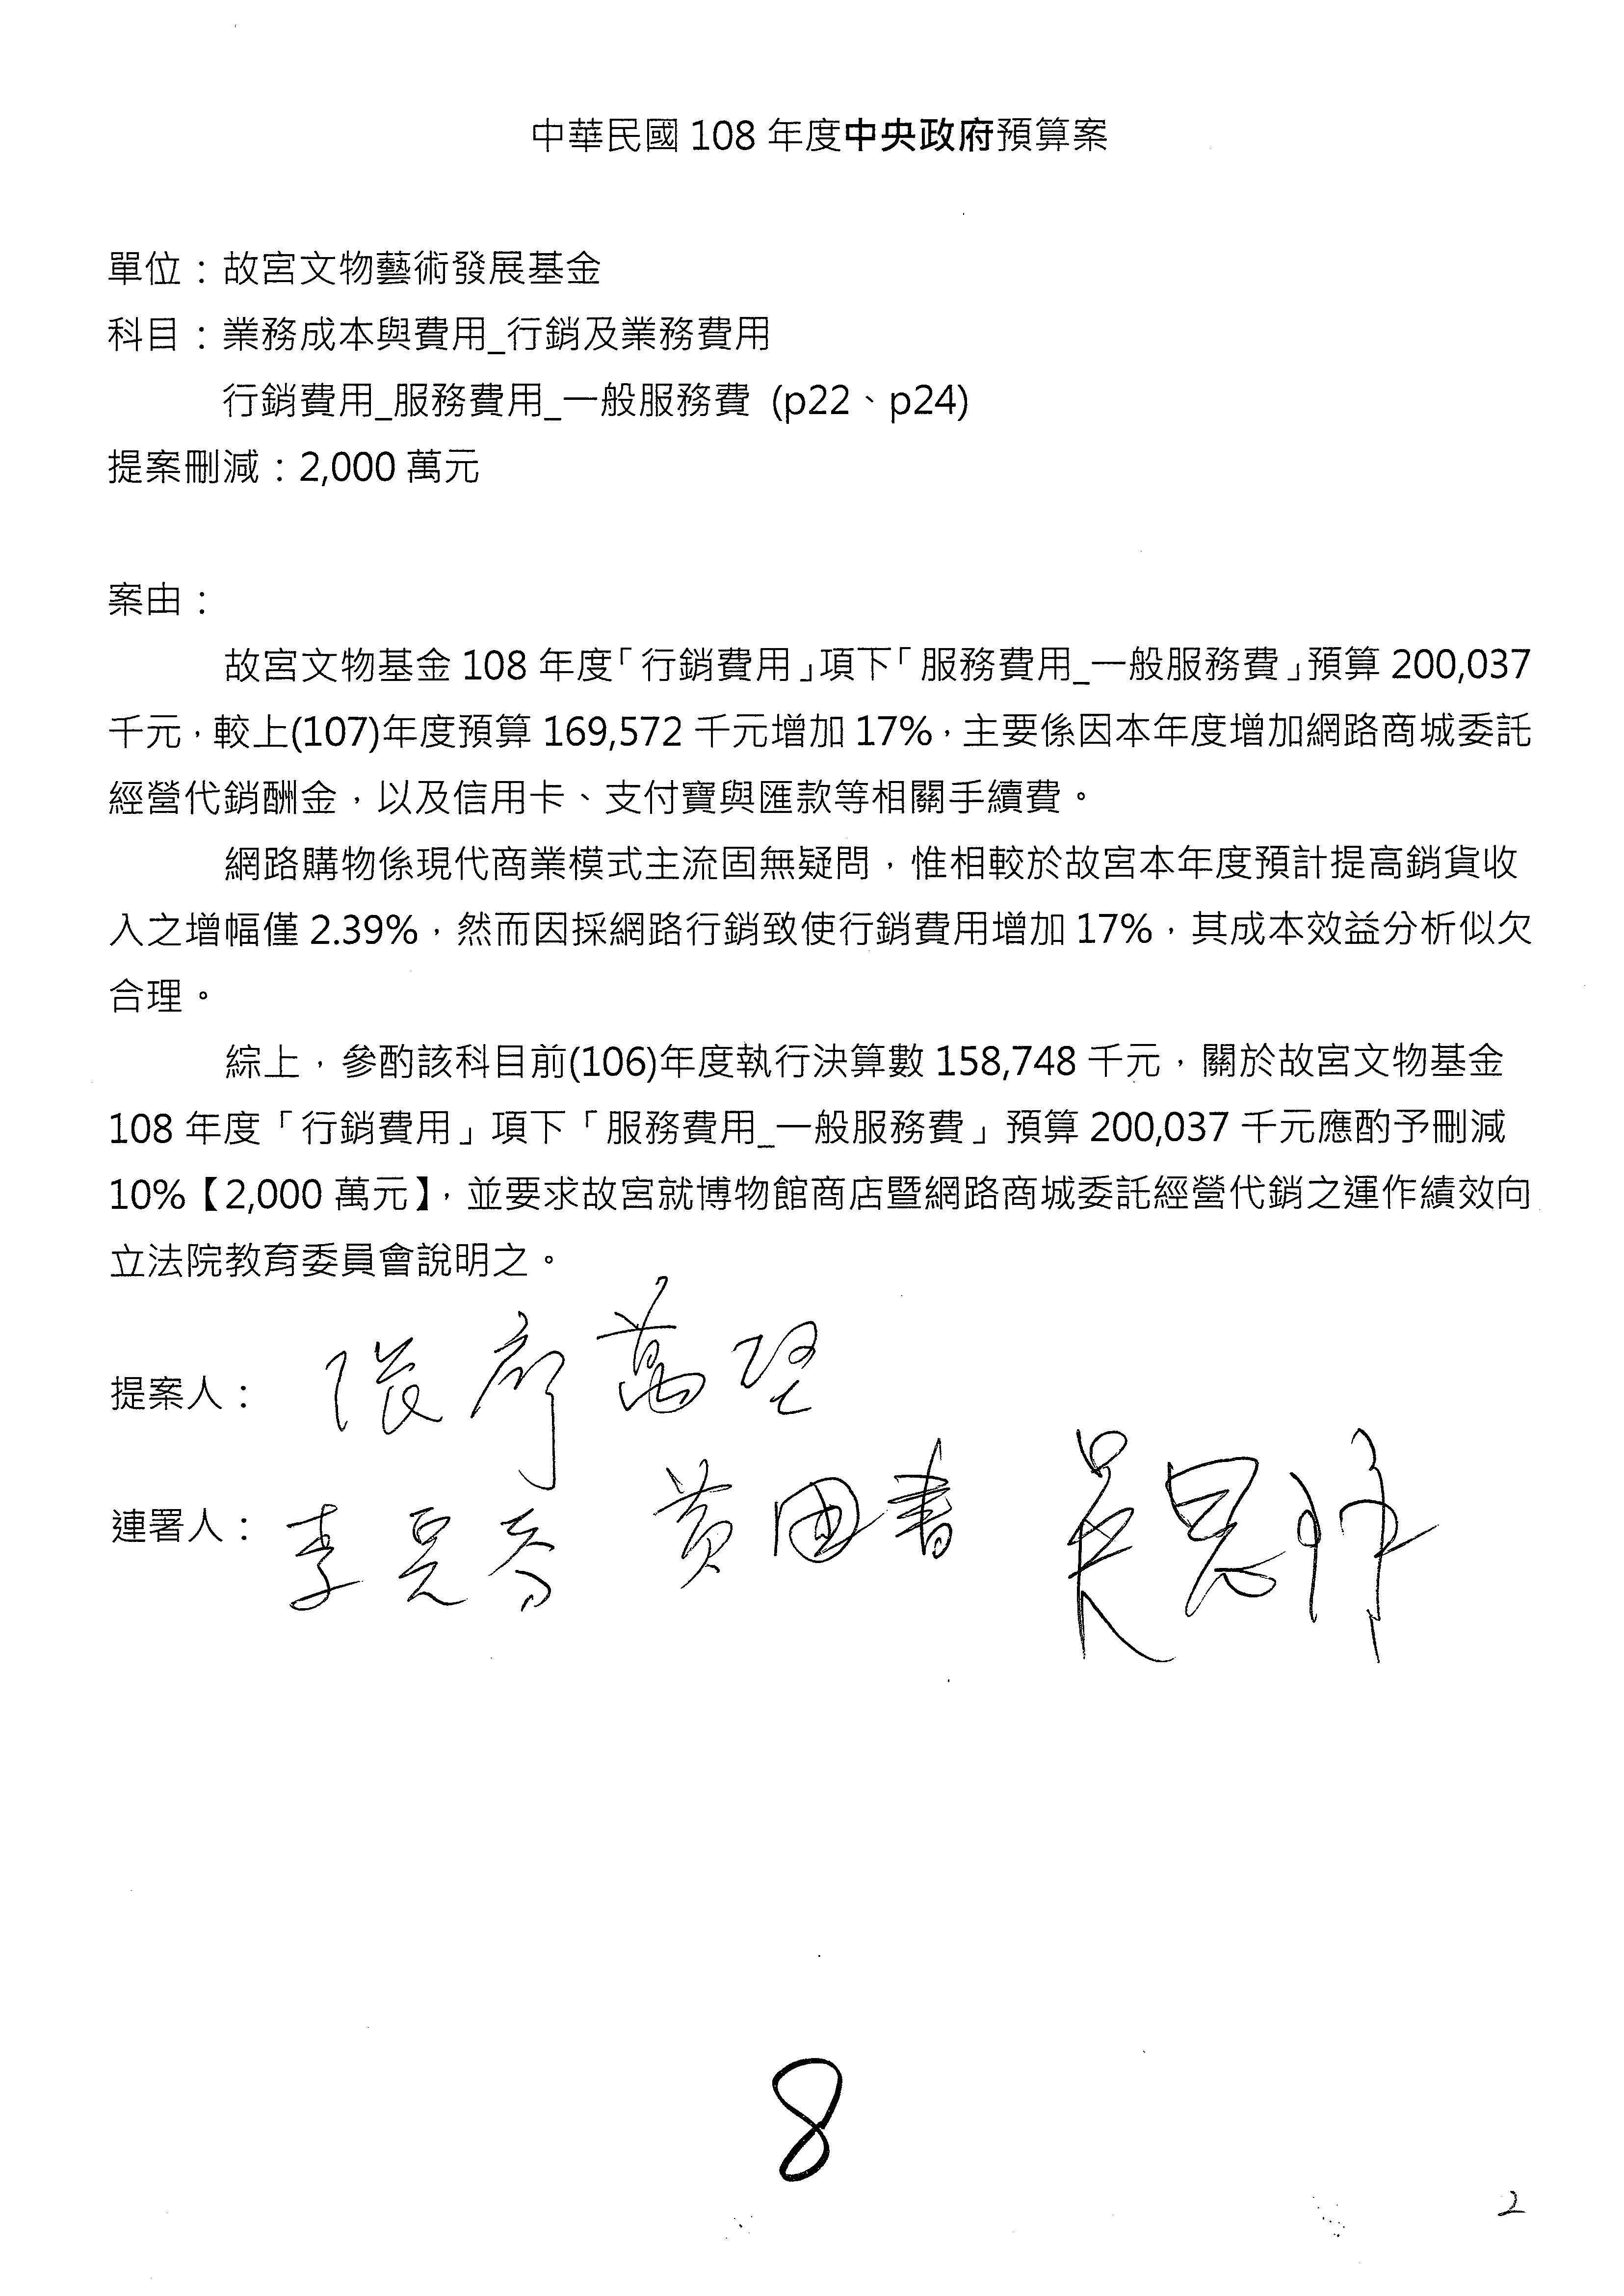 中華民國 108 年度中央政府預算案
單位：故宮文物藝術發展基金
科目：業務成本與費用_行銷及業務費用
行銷費用_服務費用_一般服務費 (p22、p24)
提案刪減：2,000 萬元
案由：
故宮文物基金 108 年度「行銷費用」項下「服務費用_一般服務費」預算 200,037
千元，較上(107)年度預算 169,572 千元增加 17%，主要係因本年度增加網路商城委託
經營代銷酬金，以及信用卡、支付寶與匯款等相關手續費。
網路購物係現代商業模式主流固無疑問，惟相較於故宮本年度預計提高銷貨收
入之增幅僅 2.39%，然而因採網路行銷致使行銷費用增加 17%，其成本效益分析似欠
合理。
綜上，參酌該科目前(106)年度執行決算數 158,748 千元，關於故宮文物基金
108 年度「行銷費用」項下「服務費用_一般服務費」預算 200,037 千元應酌予刪減
10%【2,000 萬元】，並要求故宮就博物館商店暨網路商城委託經營代銷之運作績效向
立法院教育委員會說明之。
提案人：張廖萬堅
連署人：李昆 黃國書 吳思瑤
8
2